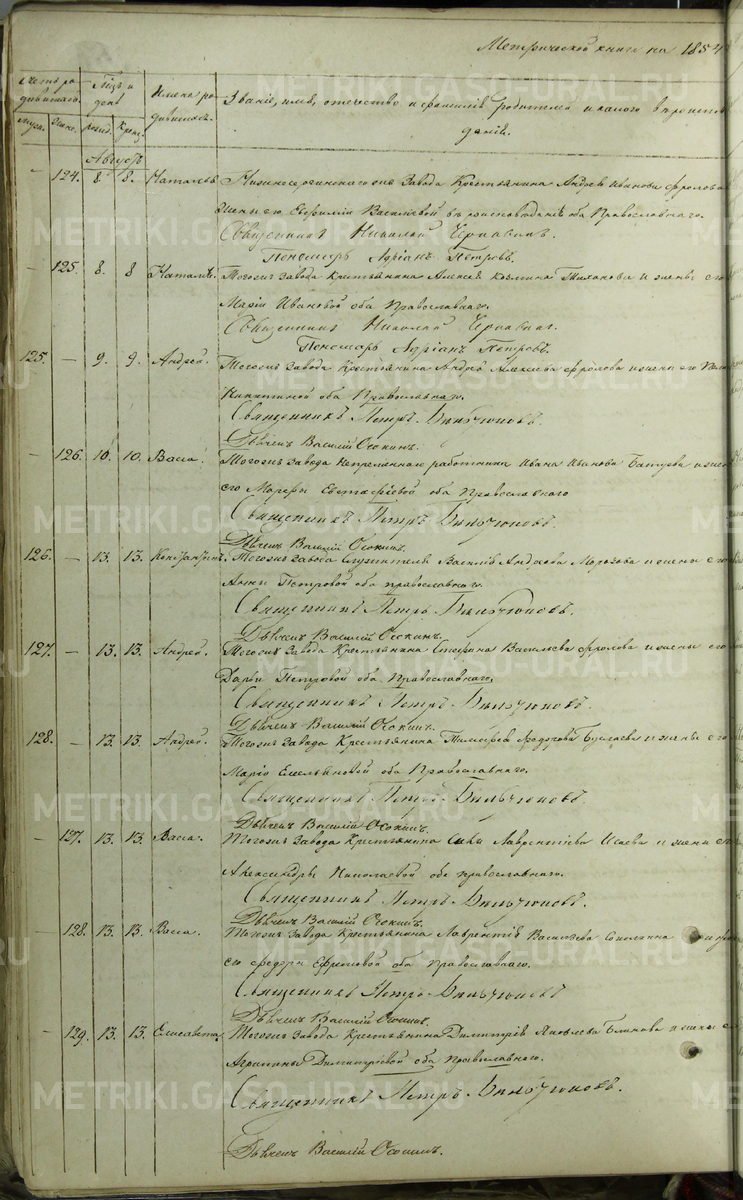 Метрической книги на 1854
Счетъ родившихся. Мѣсяцъ и день Имена родившихся. Званіе, имя, отчество и фамилія родителей и какого вѣроисповѣданія.
Муж. Жен. рожд. крещ.
Августъ
— 124. 8. 8. Наталья Нижнесергинскаго Завода Крестьянина Андрея Иванова Фролова
жены его Евфиміи Васильевой вѣроисповѣданія оба Православнаго.
Священникъ Николай Чернавинъ.
Пономарь Адріанъ Петровъ.
— 125. 8. 8 Наталья. Тогожъ завода Крестьянина Алексѣя Козьмина и жены его
Маріи Ивановой оба Православнаго.
Священникъ Николай Чернавин.
Пономарь Адріанъ Петровъ.
125. — 9. 9. Андрей. Тогожъ завода Крестьянина Андрея Алексѣева Фролова и жены его
Никитиной оба Православнаго.
Священникъ Петръ
Дьячекъ Василій Осокинъ.
— 126. 10. 10. Васса. Тогожъ завода непременнаго работника Ивана Иванова и жены
его Марфы Евстафіевой оба Православнаго
Священникъ Петръ
Дьячекъ Василій Осокинъ.
126. — 13. 13. Константинъ. Тогожъ завода Служителя Василья Морозова и жены его
Анны Петровой оба православнаго.
Священникъ Петръ
Дьячекъ Василій Осокинъ.
127. — 13. 13. Андрей. Тогожъ Завода Крестьянина Стефана Васильева Фролова и жены его
Дарьи Петровой оба Православнаго.
Священникъ Петръ
Дьячекъ Василій Осокинъ.
128. — 13. 13. Андрей. Тогожъ Завода Крестьянина Тимофея и жены его
Маріи Емельяновой оба Православнаго.
Священникъ Петръ
Дьячекъ Василій Осокинъ.
— 127. 13. 13. Васса. Тогожъ Завода Крестьянина Савы Лаврентьева Исаева и жены его
Александры Николаевой оба православнаго.
Священникъ Петръ
Дьячекъ Василій Осокинъ.
— 128. 13. 13. Васса. Тогожъ Завода Крестьянина Лаврентія Васильева
его Федоры Ефремовой оба Православнаго.
Священникъ Петръ
Дьячекъ Василій Осокинъ.
— 129. 13. 13. Елисавета. Тогожъ Завода Крестьянина Димитрія Яковлева Блинова и жены его
Агрипины Димитріевой оба Православнаго.
Священникъ Петръ
Дьячекъ Василій Осокинъ.
METRIKI.GASO-URAL.RU